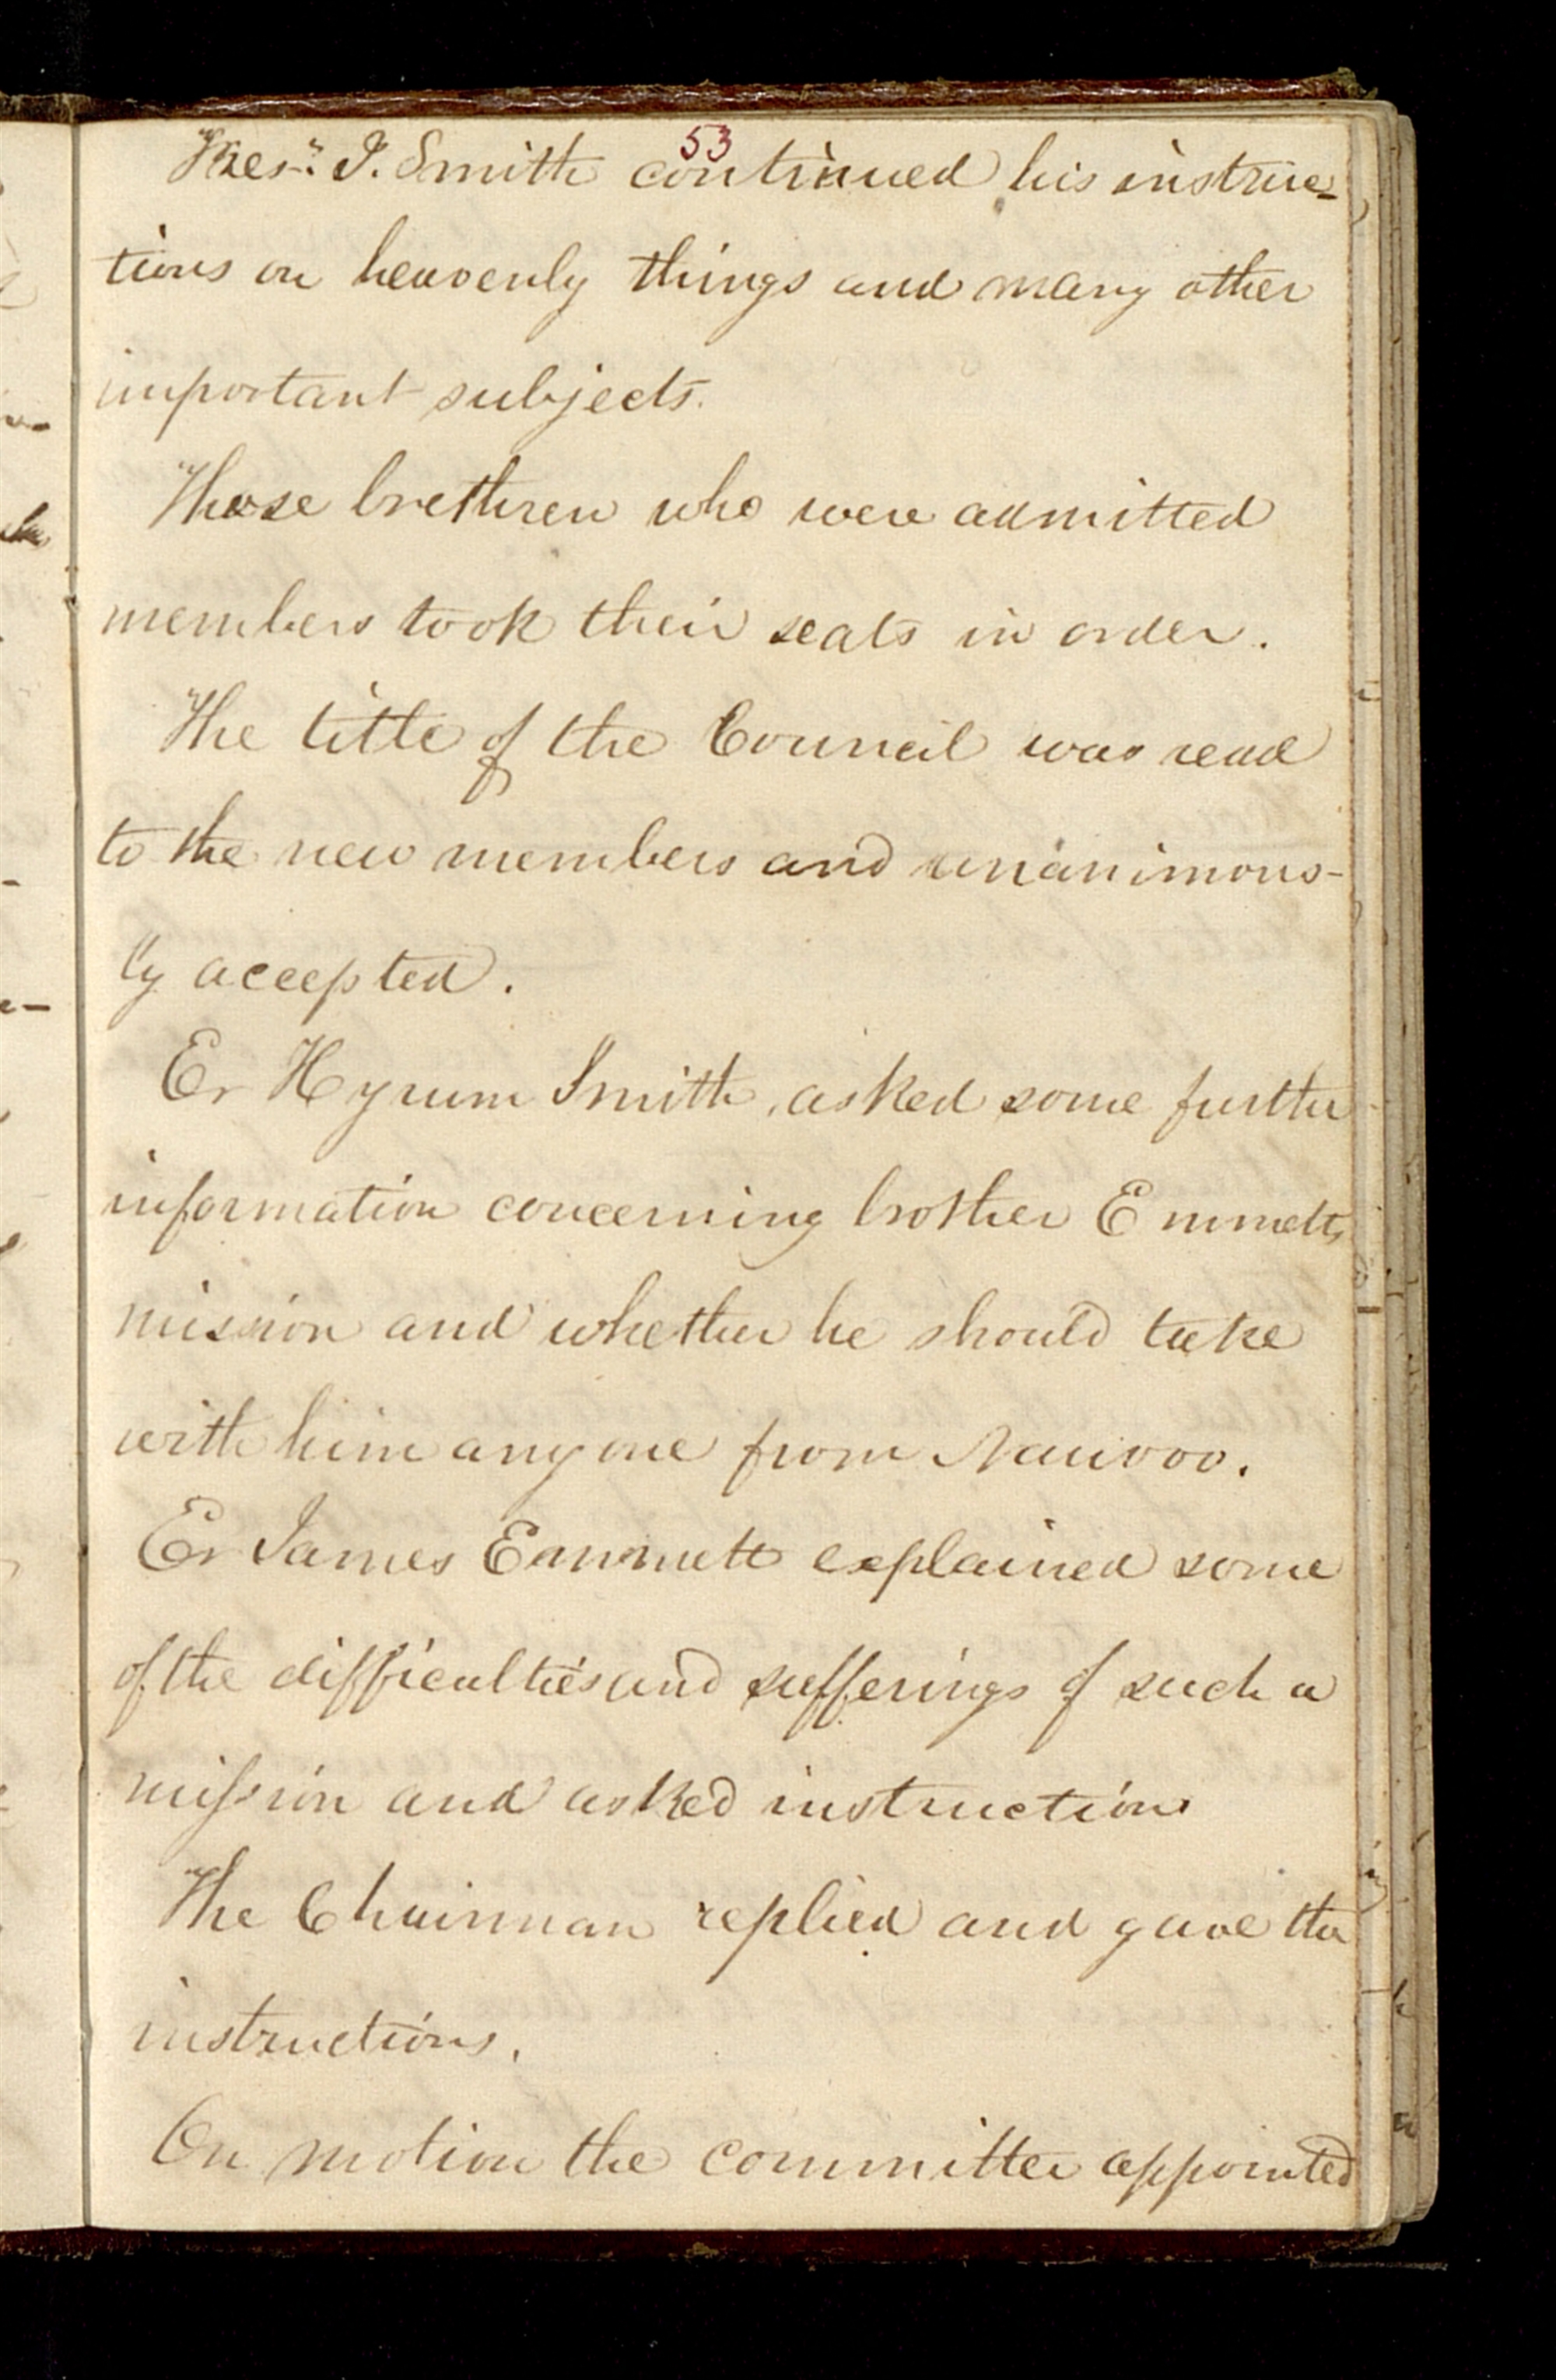 53
Prest. J. Smith continued his instruc-
tions on heavenly things and many other
important subjects.
Those brethren who were admitted
members took their seats in order.
The title of the Council was read
to the new members and unanimous-
ly accepted.
Er Hyrum Smith, asked some further
information concerning brother Emmetts
mission and whether he should take
with him any one from Nauvoo.
Er James Emmett explained some
of the difficulties and sufferings of such a
mission and asked instruction
The Chairman replied and gave the
instructions.
On motion the committee appointed